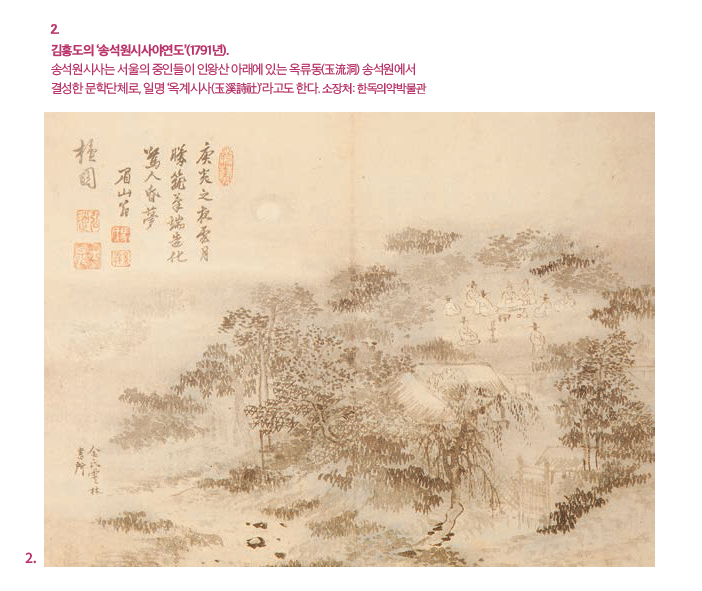 2.
김홍도의 ‘송석원시사야연도’(1791년).
송석원시사는 서울의 중인들이 인왕산 아래에 있는 옥류동(玉流洞) 송석원에서
결성한 문학단체로, 일명 ‘옥계시사(玉溪詩社)’라고도 한다. 소장처: 한독의약박물관
庚炎之夜雲月
朦籠筆端造化
驚人昏夢
眉山翁
檀園
金氏雲林
2.